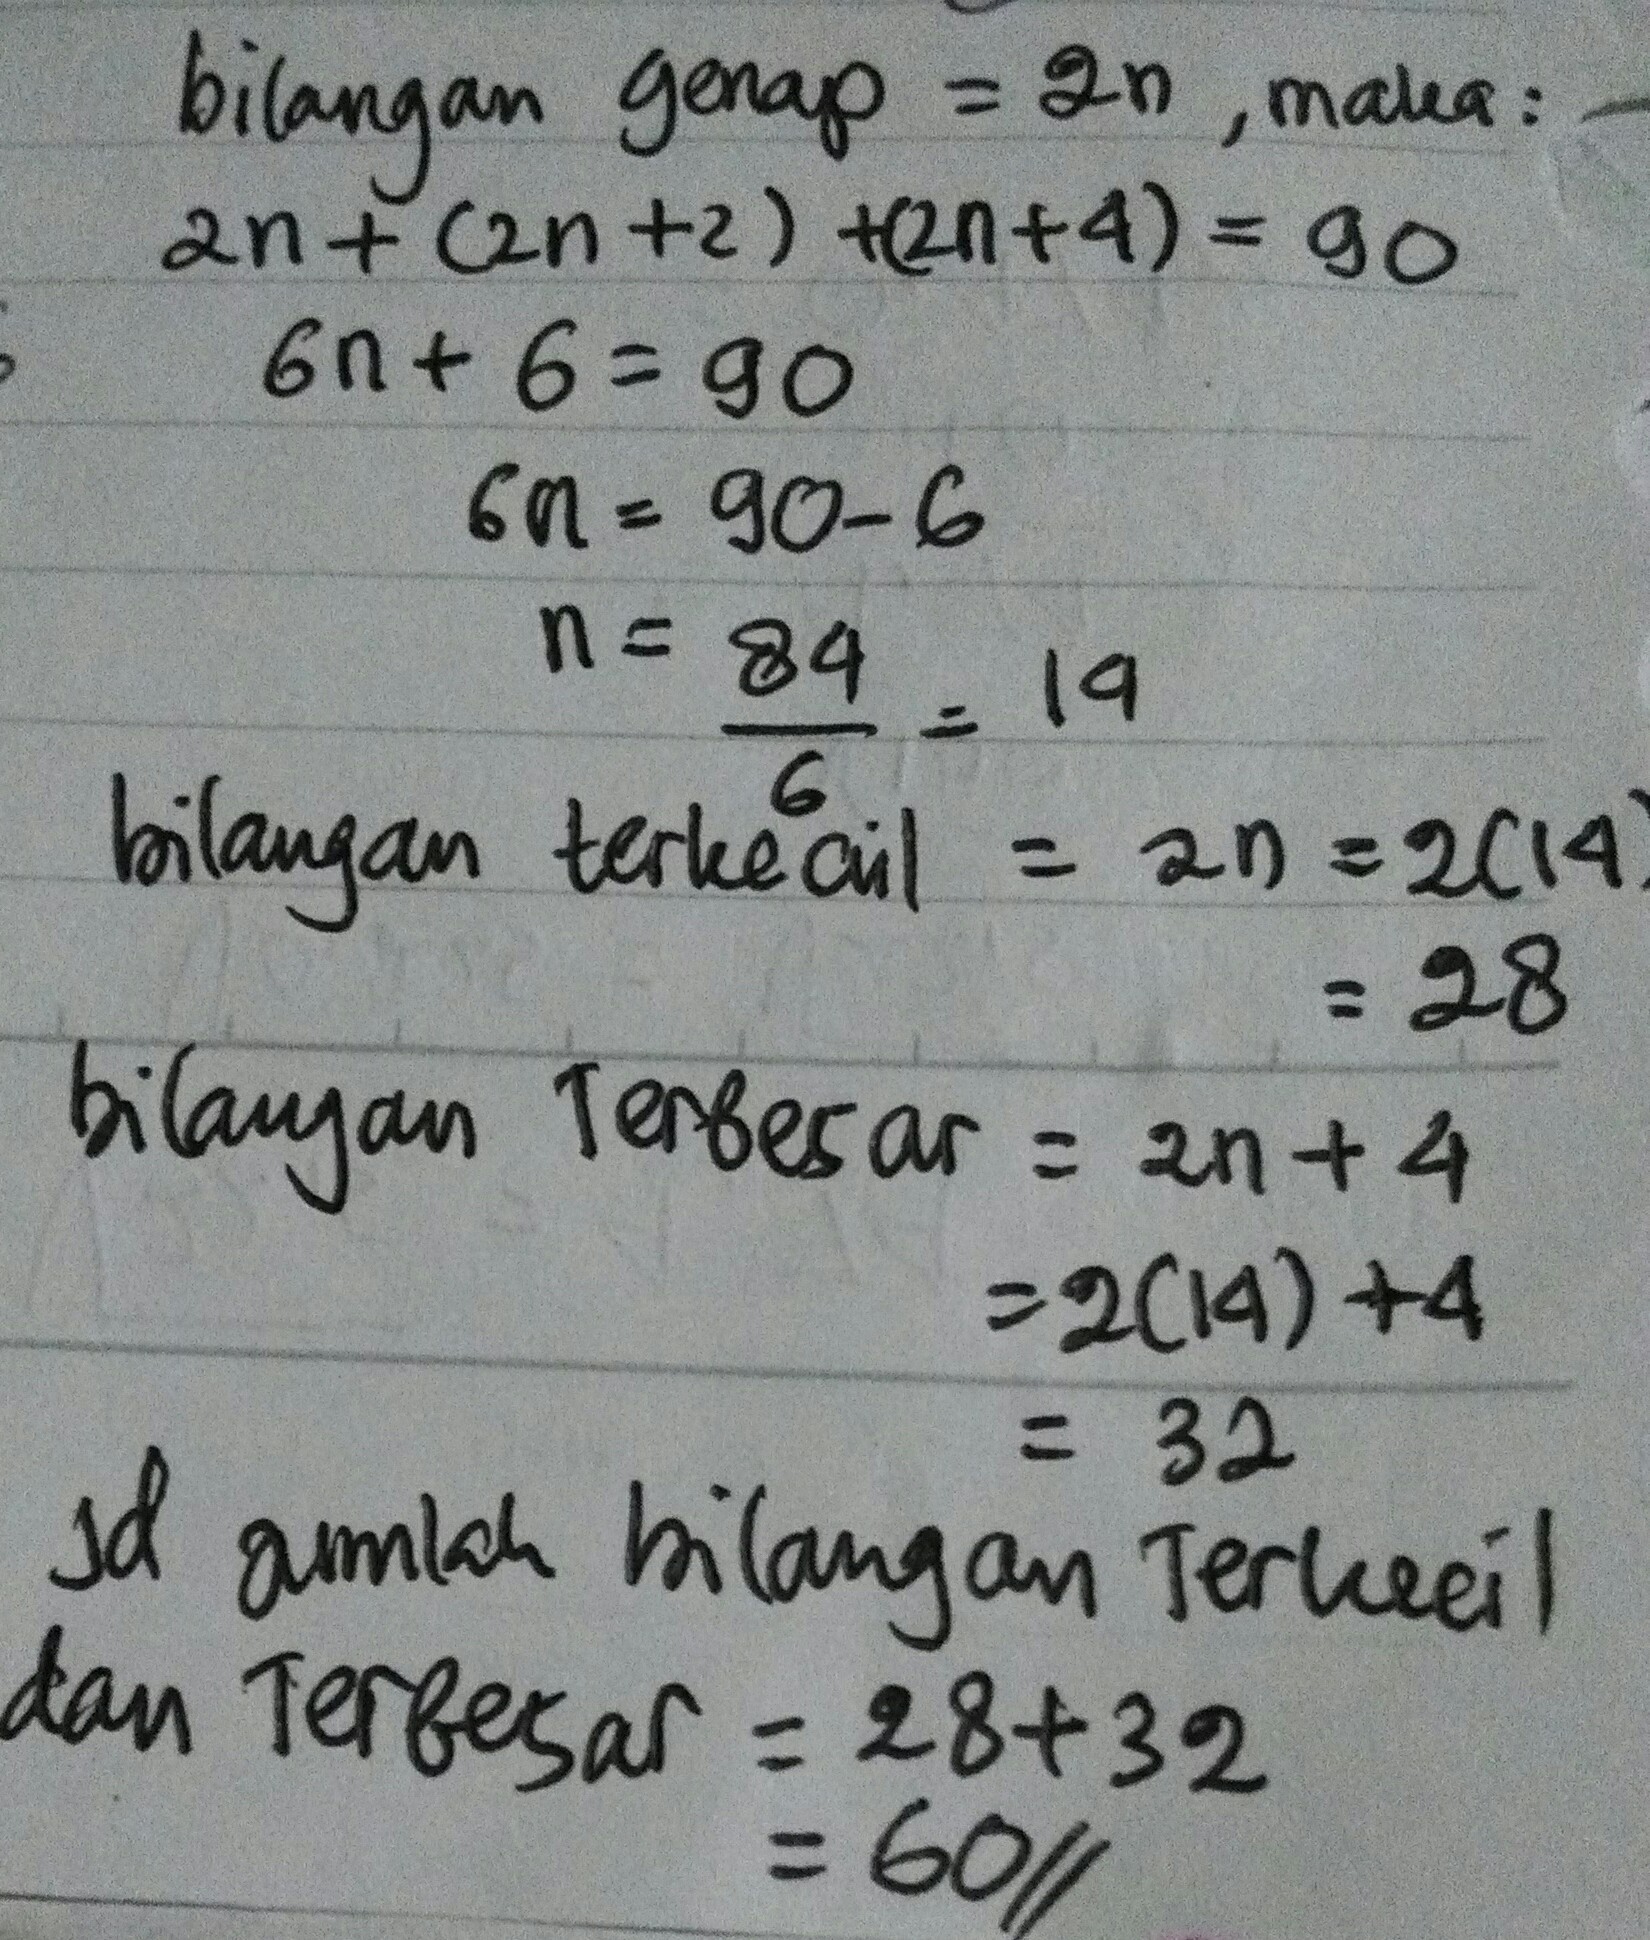 bilangan genap = 2n , maka :
2n + (2n + 2) + (2n + 4) = 90
6n + 6 = 90
6n = 90 - 6
n = 84/6 = 14
bilangan terkecil = 2n = 2(14)
= 28
bilangan Terbesar = 2n + 4
= 2(14) + 4
= 32
Jd jumlah bilangan Terkecil
dan Terbesar = 28 + 32
= 60 //